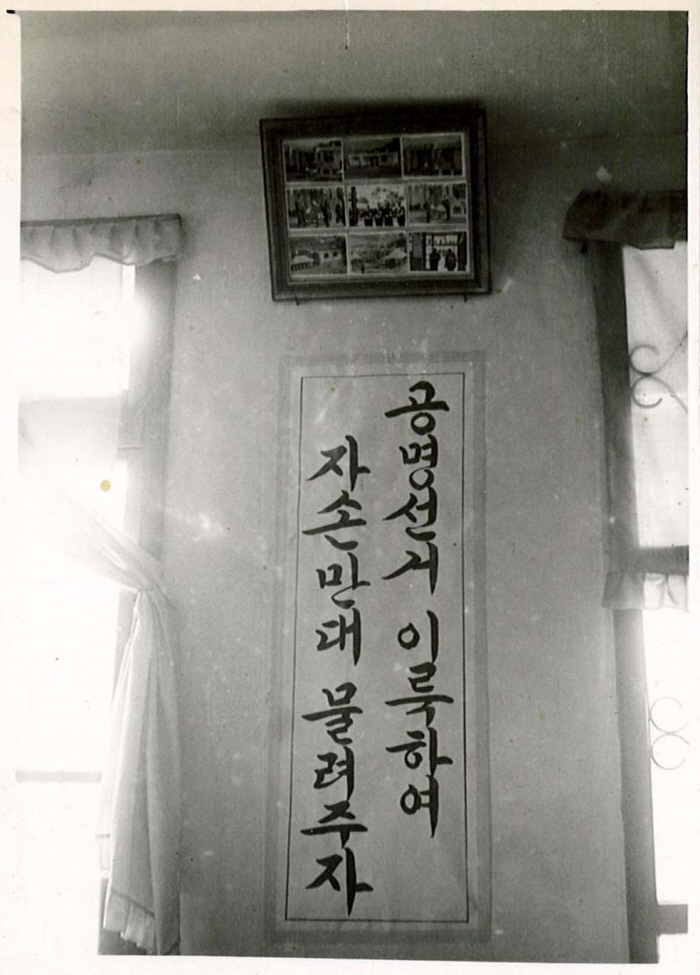 공명선거 이룩하여
자손만대 물려주자